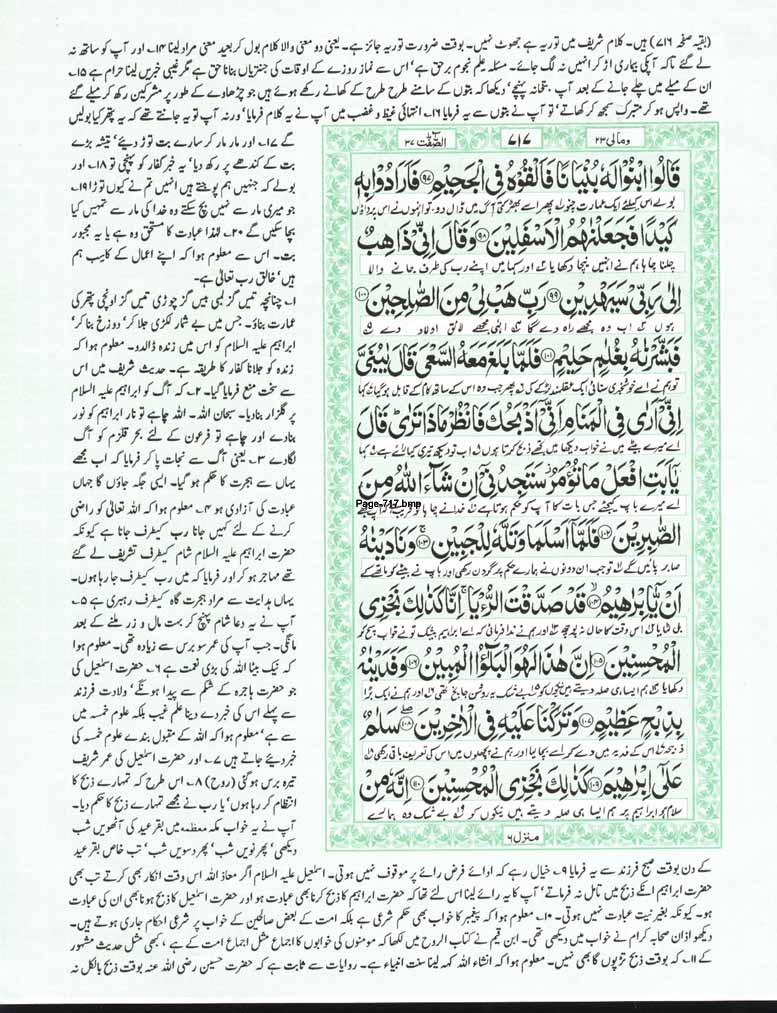 (بقیہ صفحہ ۷۱۶) ہیں۔ کلام شریف میں توریہ ہے جھوٹ نہیں۔ بوقت ضرورت توریہ جائز ہے۔ یعنی دو معنی والا کلام بول کر بعید معنی مراد لینا ۱۴۔ اور آپ کو ساتھ نہ
لے گئے تاکہ آپکی بیماری اڑ کر انہیں نہ لگ جائے۔ مسئلہ علم نجوم برحق ہے' اس سے نماز روزے کے اوقات کی جنتریاں بنانا حق ہے مگر غیبی خبریں لینا حرام ہے ۱۵۔
ان کے میلے میں چلے جانے کے بعد آپ بتخانہ پہنچے' دیکھا کہ بتوں کے سامنے طرح طرح کے کھانے رکھے ہوئے ہیں جو چڑھاوے کے طور پر مشرکین رکھ کر میلے گئے
تھے۔ واپس ہو کر متبرک سمجھ کر کھاتے' تو آپ نے بتوں سے یہ فرمایا ۱۶۔ انتہائی غیظ و غضب میں آپ نے یہ کلام فرمایا' ورنہ آپ تو یہ جانتے تھے کہ یہ پتھر کیا بولیں
گے ۱۷۔ اور مار مار کر سارے بت توڑ دیئے' تیشہ بڑے
بت کے کندھے پر رکھ دیا' یہ خبر کفار کو پہنچی تو ۱۸۔ اور
بولے کہ جنہیں ہم پوجتے ہیں انہیں تم نے کیوں توڑا ۱۹۔
جو میری مار سے نہیں بچ سکتے وہ خدا کی مار سے تمہیں کیا
بچا سکیں گے ۲۰۔ لہذا عبادت کا مستحق وہ ہے یا یہ مجبور
بت۔ اس سے معلوم ہوا کہ اپنے اعمال کے کاسب ہم
ہیں' خالق رب تعالیٰ ہے۔
۱۔ چنانچہ تیس گز لمبی بیس گز چوڑی تیس گز اونچی پتھر کی
عمارت بناؤ۔ جس میں بے شمار لکڑی جلا کر' دوزخ بنا کر'
ابراہیم علیہ السلام کو اس میں زندہ ڈالدو۔ معلوم ہوا کہ
زندہ کو جلانا کفار کا طریقہ ہے۔ حدیث شریف میں اس
سے سخت منع فرمایا گیا۔ ۲۔ کہ آگ کو ابراہیم علیہ السلام
پر گلزار بنا دیا۔ سبحان اللہ۔ اللہ چاہے تو نار ابراہیم کو نور
بنا دے اور چاہے تو فرعون کے لئے بحر قلزم کو آگ
لگا دے ۳۔ یعنی آگ سے نجات پا کر فرمایا کہ اب مجھے
یہاں سے ہجرت کا حکم ہو گیا۔ ایسی جگہ جاؤں گا جہاں
عبادت کی آزادی ہو ۴۔ معلوم ہوا کہ اللہ تعالیٰ کو راضی
کرنے کے لئے کہیں جانا رب کیطرف جانا ہے کیونکہ
حضرت ابراہیم علیہ السلام شام کیطرف تشریف لے گئے
تھے مہاجر ہو کر اور فرمایا کہ میں رب کیطرف جا رہا ہوں۔
یہاں ہدایت سے مراد ہجرت گاہ کیطرف رہبری ہے ۵۔
آپ نے یہ دعا شام پہنچ کر بہت مال و زر ملنے کے بعد
مانگی۔ جب آپ کی عمر سو برس سے زیادہ تھی۔ معلوم ہوا
کہ نیک بیٹا اللہ کی بڑی نعمت ہے ۶۔ حضرت اسمٰعیل کی
جو حضرت ہاجرہ کے شکم سے پیدا ہونگے' ولادت فرزند
سے پہلے اس کی خبر دے دینا علم غیب بلکہ علوم خمسہ میں
سے ہے' معلوم ہوا کہ اللہ کے مقبول بندے علوم خمسہ کی
خبر دیئے جاتے ہیں ۷۔ اور حضرت اسمٰعیل کی عمر شریف
تیرہ برس ہو گئی (روح) ۸۔ اس طرح کہ تمہارے ذبح کا
انتظام کر رہا ہوں' یا رب نے مجھے تمہارے ذبح کا حکم دیا۔
آپ نے یہ خواب مکہ معظمہ میں بقر عید کی آٹھویں شب
دیکھی' پھر نویں شب' پھر دسویں شب' تب خاص بقر عید
ومالی ۲۳
۷۱۷
الصّٰفّٰت ۳۷
قَالُوا ابْنُوْا لَهٗ بُنْيَانًا فَاَلْقُوْهُ فِى الْجَحِيْمِ ۹۷ فَاَرَادُوْا بِهٖ
بولے اس کیلئے ایک عمارت چنو لہ پھر اسے بھڑکتی آگ میں ڈال دو، تو انہوں نے اس پر داؤں
كَيْدًا فَجَعَلْنٰهُمُ الْاَسْفَلِيْنَ ۹۸ وَقَالَ اِنِّيْ ذَاهِبٌ
چلنا چاہا ہم نے انہیں نیچا دکھایا ۲ اور کہا میں اپنے رب کی طرف جانے والا
اِلٰى رَبِّيْ سَيَهْدِيْنِ ۹۹ رَبِّ هَبْ لِيْ مِنَ الصّٰلِحِيْنَ ۱۰۰
ہوں ۳ اب وہ مجھے راہ دے گا ۴ الٰہی مجھے لائق اولاد دے ۵
فَبَشَّرْنٰهُ بِغُلٰمٍ حَلِيْمٍ ۱۰۱ فَلَمَّا بَلَغَ مَعَهُ السَّعْيَ قَالَ يٰبُنَيَّ
تو ہم نے اسے خوشخبری سنائی ایک عقلمند لڑکے کی ۶ پھر جب وہ اس کے ساتھ کام کے قابل ہو گیا ۷ کہا
اِنِّيْٓ اَرٰى فِى الْمَنَامِ اَنِّيْٓ اَذْبَحُكَ فَانْظُرْ مَاذَا تَرٰى قَالَ
اے میرے بیٹے میں نے خواب دیکھا میں تجھے ذبح کرتا ہوں ۸ اب تو دیکھ تیری کیا رائے ہے ۹ کہا
يٰٓاَبَتِ افْعَلْ مَا تُؤْمَرُ سَتَجِدُنِيْٓ اِنْ شَآءَ اللّٰهُ مِنَ
اے میرے باپ کیجئے جس بات کا آپ کو حکم ہوتا ہے ۱۰ خدا نے چاہا تو قریب ہے کہ آپ مجھے
Page-717.bmp
الصّٰبِرِيْنَ ۱۰۲ فَلَمَّآ اَسْلَمَا وَتَلَّهٗ لِلْجَبِيْنِ ۱۰۳ وَنَادَيْنٰهُ
صابر پائیں گے ۱۱ تو جب ان دونوں نے ہمارے حکم پر گردن رکھی اور باپ نے بیٹے کو ماتھے کے
اَنْ يّٰٓاِبْرٰهِيْمُ ۱۰۴ قَدْ صَدَّقْتَ الرُّءْيَا اِنَّا كَذٰلِكَ نَجْزِى
بل لٹایا اس وقت کا حال نہ پوچھ اور ہم نے ندا فرمائی کہ اے ابراہیم بیشک تو نے خواب سچ کر
الْمُحْسِنِيْنَ ۱۰۵ اِنَّ هٰذَا لَهُوَ الْبَلٰٓؤُا الْمُبِيْنُ ۱۰۶ وَفَدَيْنٰهُ
دکھایا ہم ایسا ہی صلہ دیتے ہیں نیکوں کو بے شک یہ روشن جانچ تھی اور ہم نے ایک بڑا
بِذِبْحٍ عَظِيْمٍ ۱۰۷ وَتَرَكْنَا عَلَيْهِ فِى الْاٰخِرِيْنَ ۱۰۸ سَلٰمٌ
ذبیحہ اس کے فدیہ میں دے کر اسے بچا لیا اور ہم نے پچھلوں میں اس کی تعریف باقی رکھی
عَلٰٓى اِبْرٰهِيْمَ ۱۰۹ كَذٰلِكَ نَجْزِى الْمُحْسِنِيْنَ ۱۱۰ اِنَّهٗ مِنْ
سلام ہو ابراہیم پر ہم ایسا ہی صلہ دیتے ہیں نیکوں کو بے شک وہ ہمارے
منزل ۶
کے دن بوقت صبح فرزند سے یہ فرمایا ۹۔ خیال رہے کہ ادائے فرض رائے پر موقوف نہیں ہوتی۔ اسمٰعیل علیہ السلام اگر معاذ اللہ اس وقت انکار بھی کرتے تب بھی
حضرت ابراہیم انکے ذبح میں تامل نہ فرماتے' آپ کا یہ رائے لینا اس لئے تھا کہ حضرت ابراہیم کا ذبح کرنا بھی عبادت ہو اور حضرت اسمٰعیل کا ذبح ہونا بھی ان کی عبادت
ہو۔ کیونکہ بغیر نیت عبادت نہیں ہوتی۔ ۱۰۔ معلوم ہوا کہ پیغمبر کا خواب بھی حکم شرعی ہے بلکہ امت کے بعض صالحین کے خواب پر شرعی احکام جاری ہوتے ہیں۔
دیکھو اذان صحابہ کرام نے خواب میں دیکھی تھی۔ ابن قیم نے کتاب الروح میں لکھا کہ مومنوں کی خوابوں کا اجماع مثل اجماع امت کے ہے، کبھی مثل حدیث مشہور
کے ۱۱۔ کہ بوقت ذبح تڑپوں گا بھی نہیں۔ معلوم ہوا کہ انشاء اللہ کہہ لینا سنت انبیاء ہے۔ روایات سے ثابت ہے کہ حضرت حسین رضی اللہ عنہ بوقت ذبح بالکل نہ